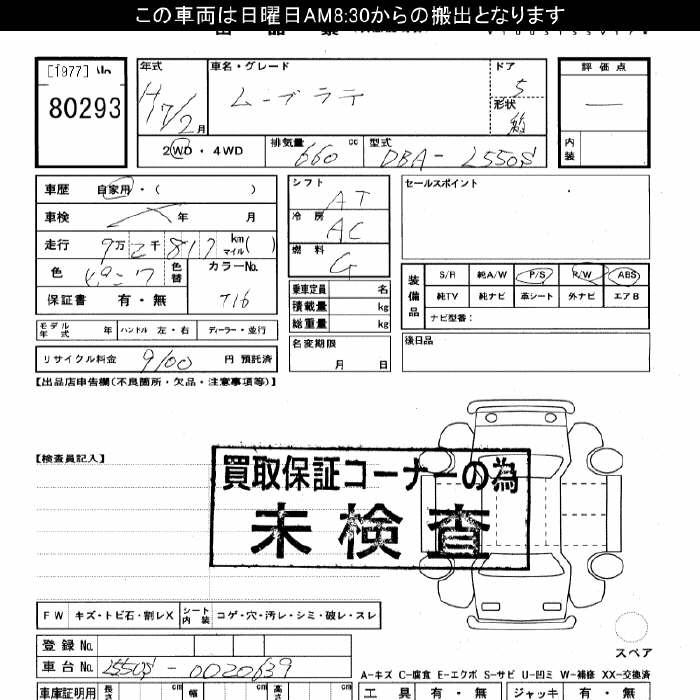 この車両は日曜日AM8:30からの搬出となります
[1977]
80293
年式
H17/2月
車名・グレード
ムーブラテ
ドア
5
形状
箱
評価点
—
内装
2WD・4WD
排気量
660 cc
型式
DBA-L550S
車歴 自家用・( )
車検 年 月
走行 9万2千817 km マイル( )
色 ピンク 色替
カラーNo.
T16
保証書 有・無
シフト
AT
冷房
AC
燃料
G
セールスポイント
乗車定員 名
積載量 kg
総重量 kg
装備品
S/R 純A/W P/S R/W ABS
純TV 純ナビ 革シート 外ナビ エアB
ナビ型番:
モデル年式 年 ハンドル 左・右 ディーラー・並行
名変期限
月 日
後日品
リサイクル料金 9100 円 預託済
【出品店申告欄(不良箇所・欠品・注意事項等)】
【検査員記入】
買取保証コーナーの為
未検査
FW キズ・トビ石・割レX シート内装 コゲ・穴・汚レ・シミ・破レ・スレ
スペア
登録No.
車台No. L550S-0020639
A-キズ C-腐食 E-エクボ S-サビ U-凹ミ W-補修 XX-交換済
車庫証明用 長さ cm 幅 cm 高さ cm
工具 有・無 ジャッキ 有・無